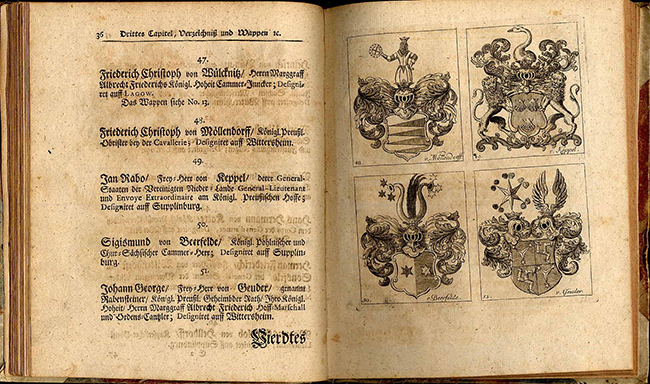 36 Drittes Capitel, Verzeichniß und Wappen ꝛc.
47.
Friederich Christoph von Wülcknitz/ Herrn Marggraff
Albrecht Friederichs Königl. Hoheit Cammer-Juncker; Designi-
ret auff LAGOW.
Das Wappen siehe No. 13.
48.
Friederich Christoph von Möllendorff/ Königl. Preußl.
Obrister bey der Cavallerie; Designiret auff Wittersheim.
49.
Jan Rabo/ Frey-Herr von Keppel/ derer General-
Staaten der Vereinigten Nieder-Lande General-Lieutenant
und Envoye Extraordinaire am Königl. Preußischen Hoffe;
Designiret auff Supplinburg.
50.
Sigismund von Beerfelde/ Königl. Pohlnischer und
Chur-Sächsischer Cammer-Herr; Designiret auff Supplin-
burg.
51.
Johann George/ Frey-Herr von Geuder/ genannt
Rabensteiner/ Königl. Preußl. Geheimbder Rath/ Ihro Königl.
Hoheit/ Herrn Marggraff Albrecht Friederich Hoff-Marschall
und Ordens-Cantzler; Designiret auff Wittersheim.
Vierdtes
v. Möllendorff
v. Keppel
50. v. Beerfelde
51. v. Geuder